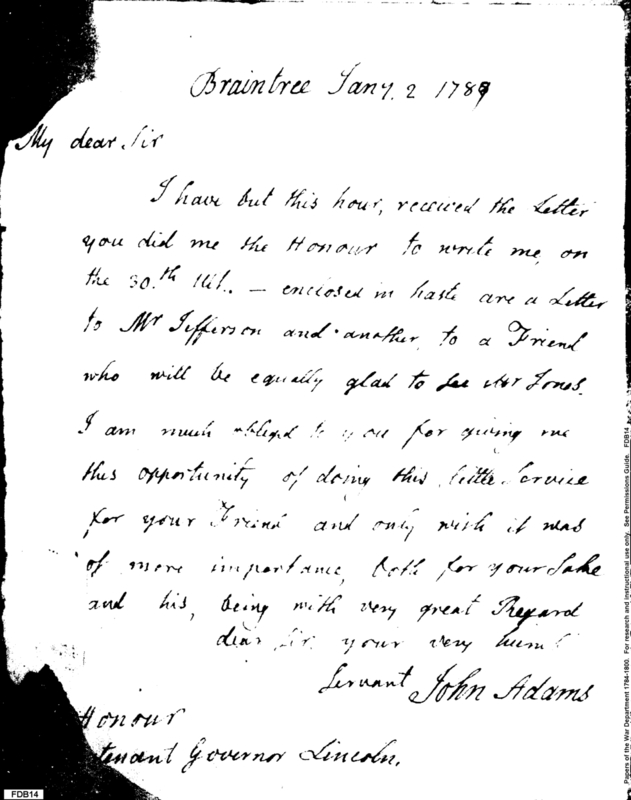 Braintree Jany. 2 1789
My dear Sir
I have but this hour, received the Letter
you did me the Honour to write me, on
the 30.th Ult. — enclosed in haste are a Letter
to Mr Jefferson and another, to a Friend
who will be equally glad to see Mr Jones.
I am much obliged to you for giving me
this opportunity of doing this little Service
for your Friend and only wish it was
of more importance, both for your Sake
and his, being with very great Regard
dear Sir your very hum
Servant John Adams
Honour
tenant Governor Lincoln.
FDB14
Papers of the War Department 1784-1800. For research and instructional use only. See Permissions Guide. FDB14